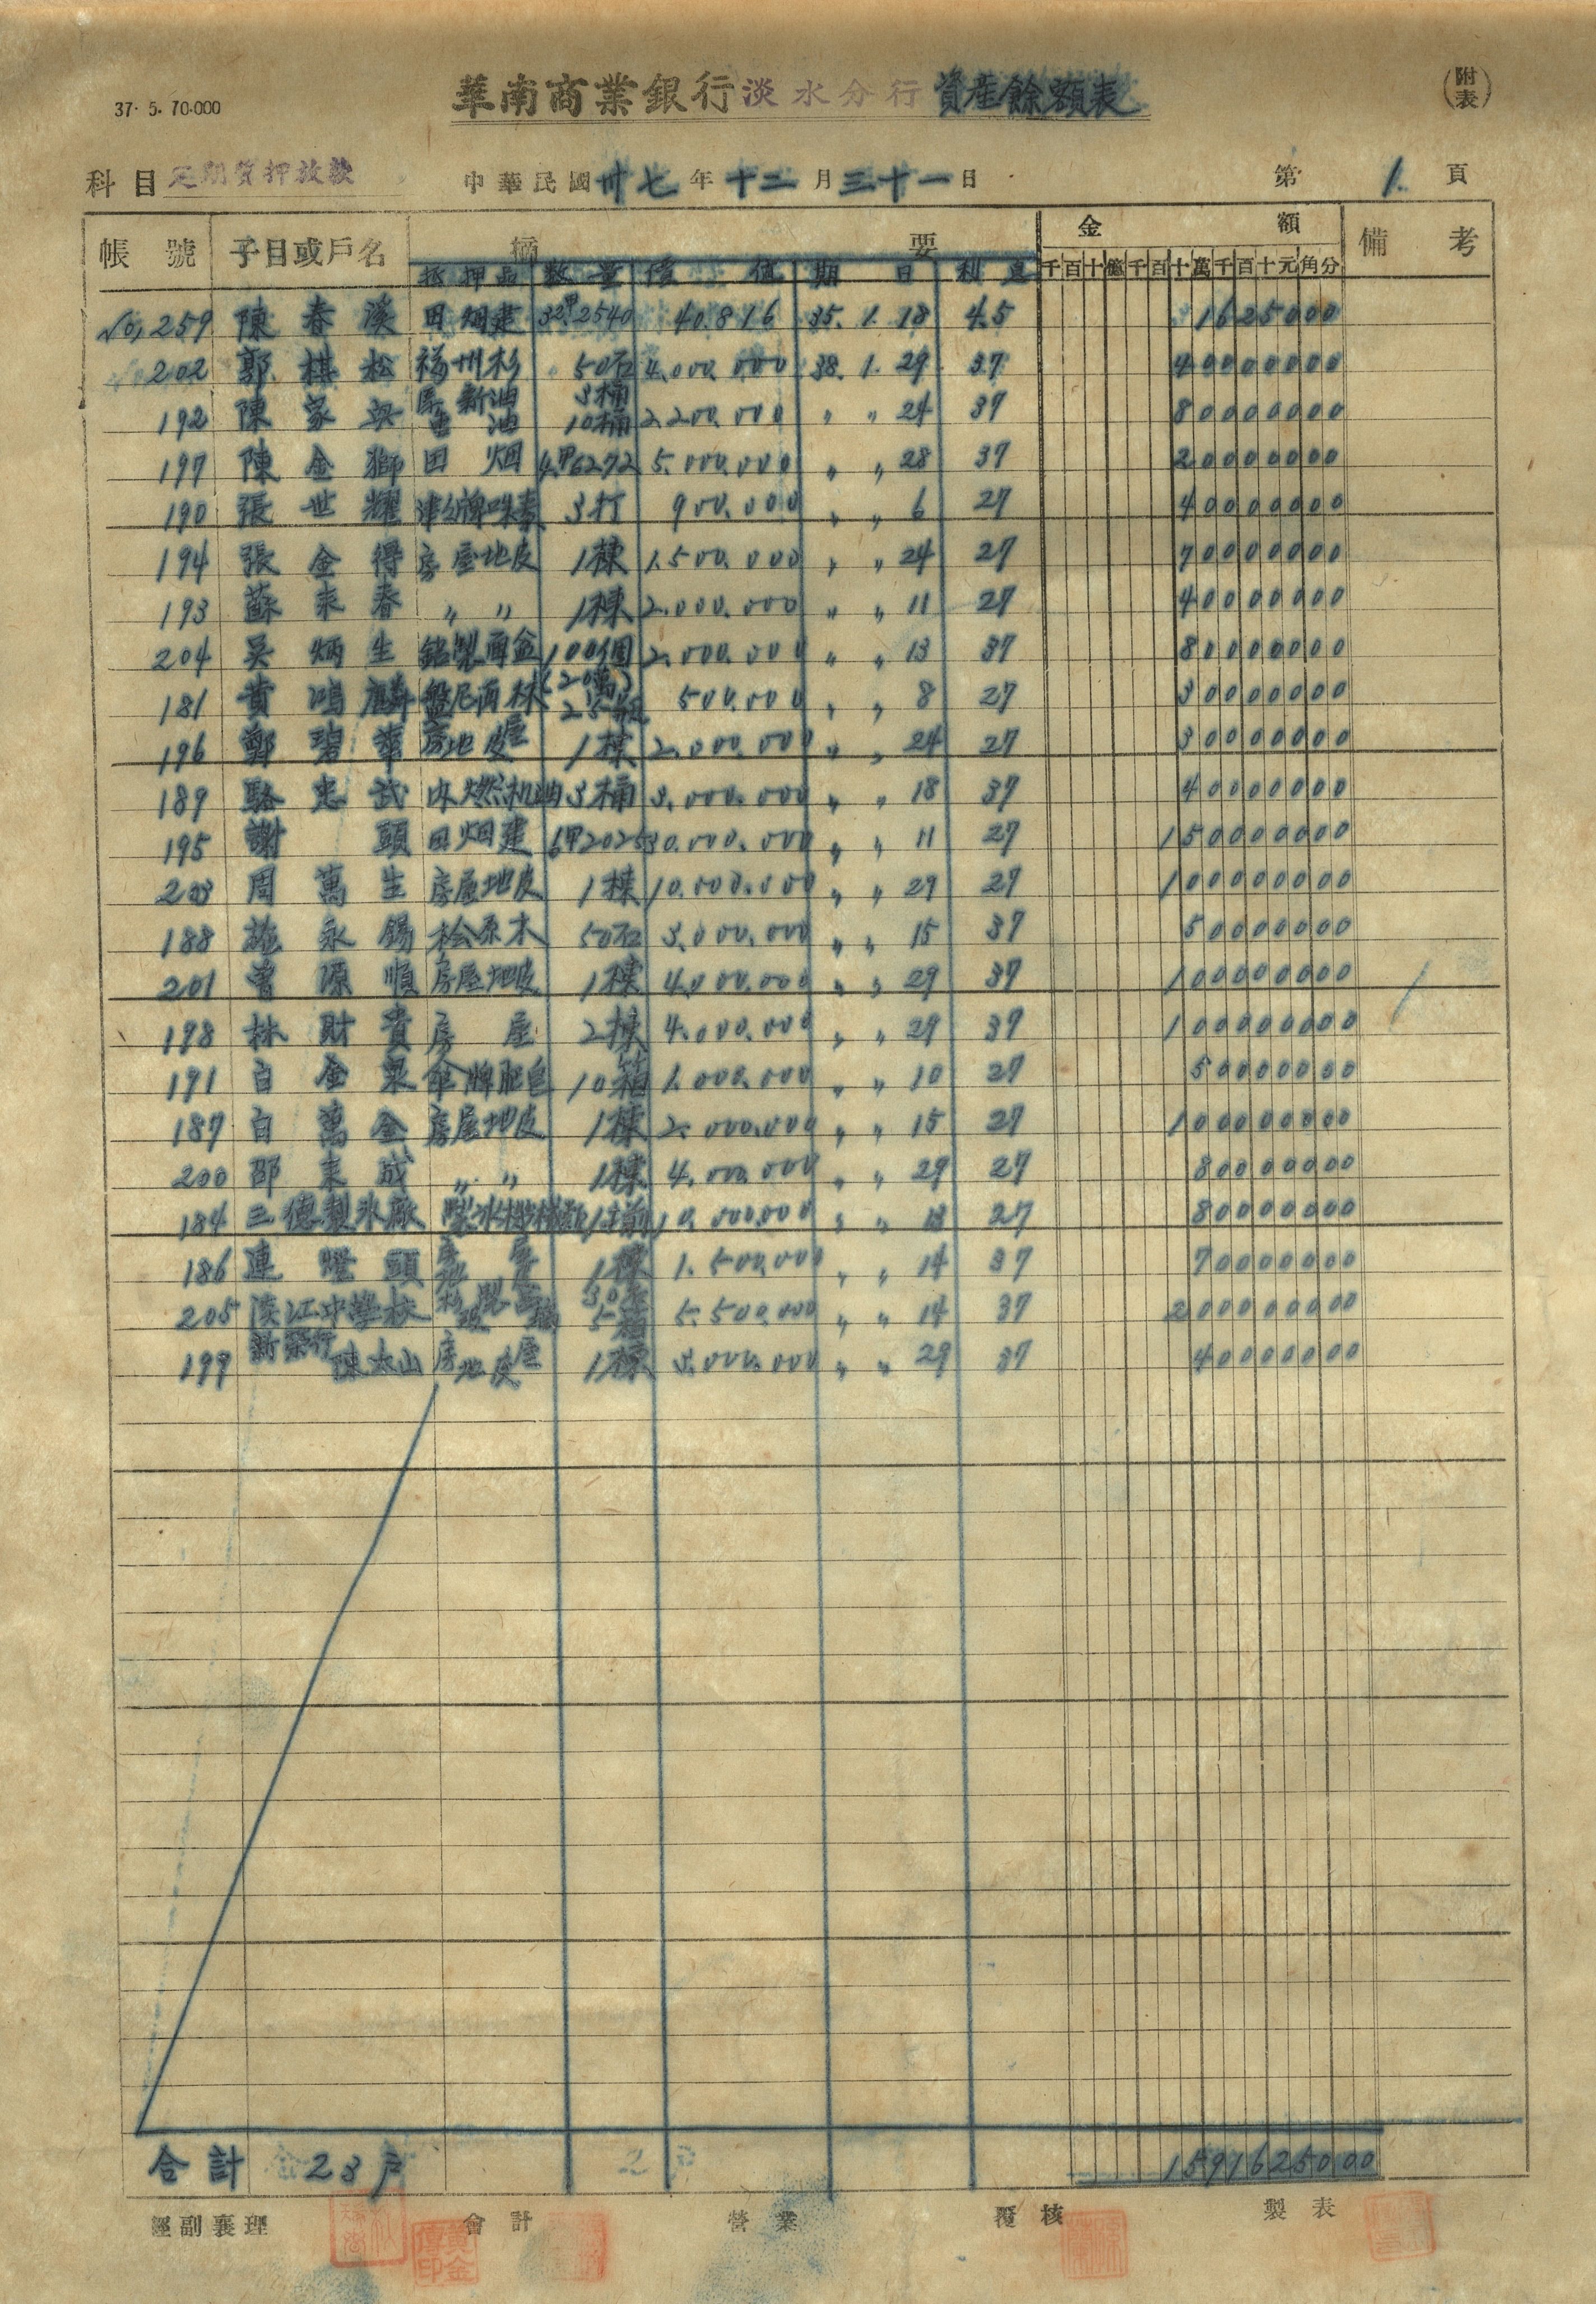 37. 5. 70.000
華南商業銀行淡水分行資産餘額表
(附表)
科目 定期質押放款 中華民國卅七年十二月三十一日 第1.頁
帳號 子目或戶名 摘要 金額 備考
抵押品 数量 價值 期日 利息 千百十億千百十萬千百十元角分
No,259 陳春溪 田畑建 32甲2540 40.816 35. 1. 18 4.5 1625000
202 郭棋松 福州杉 50石 4.000.000 38. 1. 29 37 40000000
192 陳家 新油 3桶 重油 10桶 2.200.000 〃 〃 24 37 80000000
197 陳金獅 田畑 4甲6272 5.000.000 〃 〃 28 37 20000000
190 張世耀 3打 900.000 〃 〃 6 27 40000000
194 張金得 房屋地皮 1棟 1.500.000 〃 〃 24 27 70000000
193 蘇来春 〃 〃 1棟 2.000.000 〃 〃 11 27 40000000
204 吳炳生 鋁製面盆 100個 2.000.000 〃 〃 13 37 80000000
181 黄鴻麟 盤尼西林 (20萬) 25瓶 500.000 〃 〃 8 27 30000000
196 鄭碧華 房屋地皮 1棟 2.000.000 〃 〃 24 27 30000000
189 駱忠武 内燃机油 3桶 3.000.000 〃 〃 18 37 40000000
195 謝頭 田畑建 6甲2025 30.000.000 〃 〃 11 27 150000000
203 周萬生 房屋地皮 1棟 10.000.000 〃 〃 29 27 100000000
188 施永錫 桧原木 50石 3.000.000 〃 〃 15 37 50000000
201 曾源順 房屋地皮 1棟 4.000.000 〃 〃 29 37 100000000
198 林財貴 房屋 2棟 4.000.000 〃 〃 29 37 100000000
191 白金泉 傘牌肥皂 10箱 1.000.000 〃 〃 10 27 50000000
187 白萬金 房屋地皮 1棟 2.000.000 〃 〃 15 27 100000000
200 邵来成 〃 〃 1棟 4.000.000 〃 〃 29 27 80000000
184 三德製氷廠 製氷機械 10.000.000 〃 〃 13 27 80000000
186 連燈頭 房屋 1棟 1.500.000 〃 〃 14 37 70000000
205 淡江中學校 5箱 5.500.000 〃 〃 14 37 200000000
199 新泰行 陳太山 房屋地皮 1棟 3.000.000 〃 〃 29 37 40000000
合計 23戶 1591625000
經副襄理 會計 營業 覆核 製表
黄金厚印